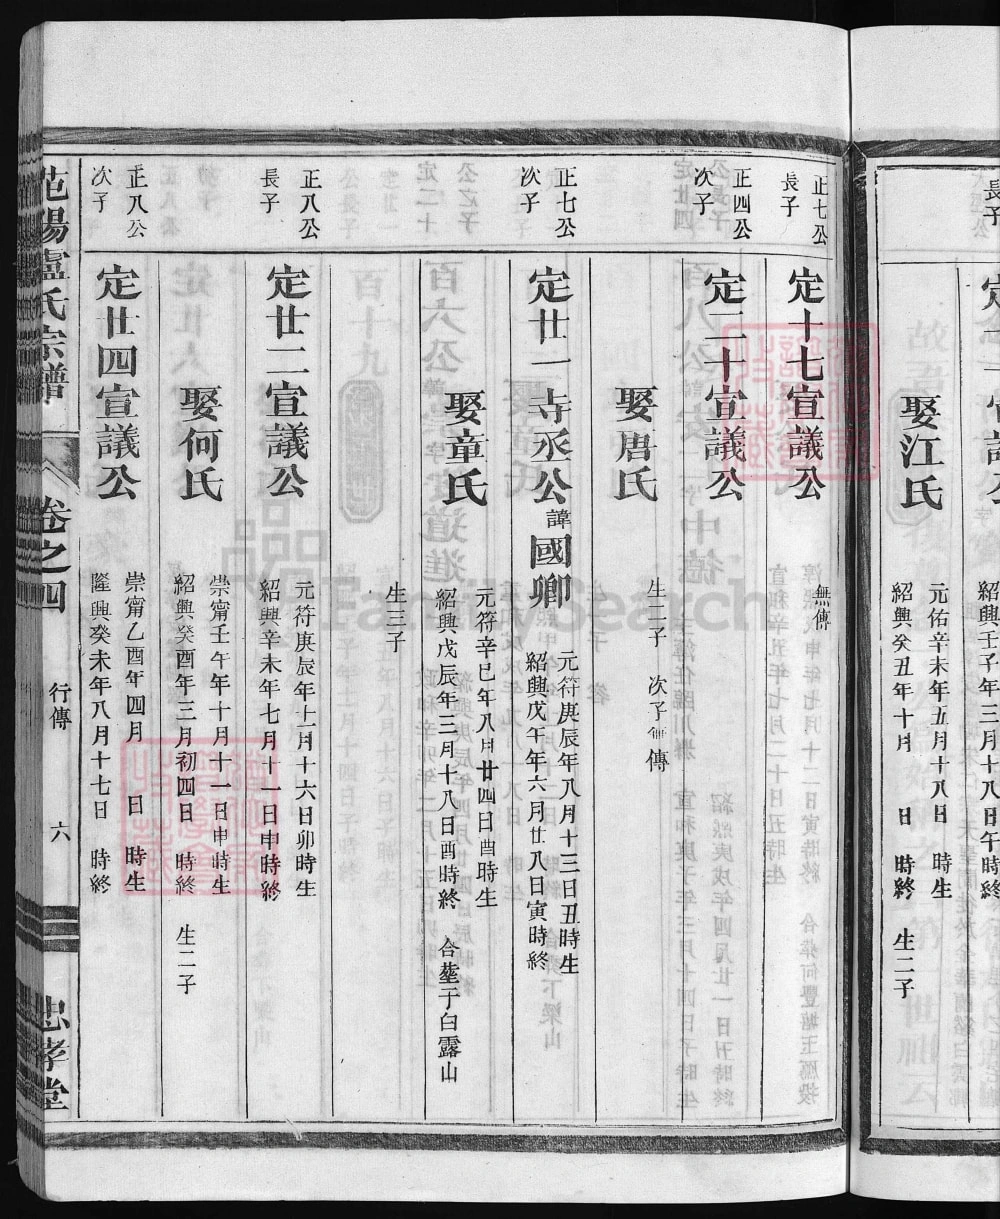 長子
娶江氏
元佑辛未年五月十八日 時生
紹興癸丑年十月 日 時終 生二子
正七公
長子
定十七宣議公
無傳
正四公
次子
定二十宣議公
娶唐氏
生二子 次子 傳
正七公
次子
定廿一寺丞公諱國卿
元符庚辰年八月十三日丑時生
紹興戊午年六月廿八日寅時終
娶童氏
元符辛巳年八月廿四日酉時生
紹興戊辰年三月十八日酉時終 合塟于白露山
生三子
正八公
長子
定廿二宣議公
元符庚辰年十二月十六日卯時生
紹興辛未年七月十一日申時終
娶何氏
崇甯壬午年十月十一日申時生
紹興癸酉年三月初四日 時終 生二子
正八公
次子
定廿四宣議公
崇甯乙酉年四月 日 時生
隆興癸未年八月十七日 時終
范陽盧氏宗譜
卷之四
行傳
六
忠孝堂
FamilySearch